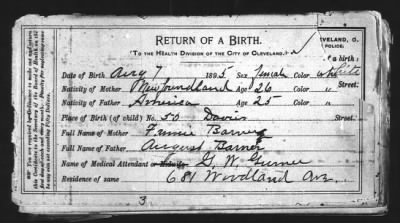 RETURN OF A BIRTH.
To the Health Division of the City of Cleveland.
EVELAND, O.
POLICE:
(a birth.)
Date of Birth Aug 7 1895 Sex Female Color white
Nativity of Mother Newfoundland Age 26 Color " Street.
Nativity of Father America Age 25 Color "
Place of Birth (of child) No. 50 Davis Street.
Full Name of Mother Fannie Barner
Full Name of Father August Barner
Name of Medical Attendant or Midwife G. W.
Residence of same 681 Woodland Ave.
3